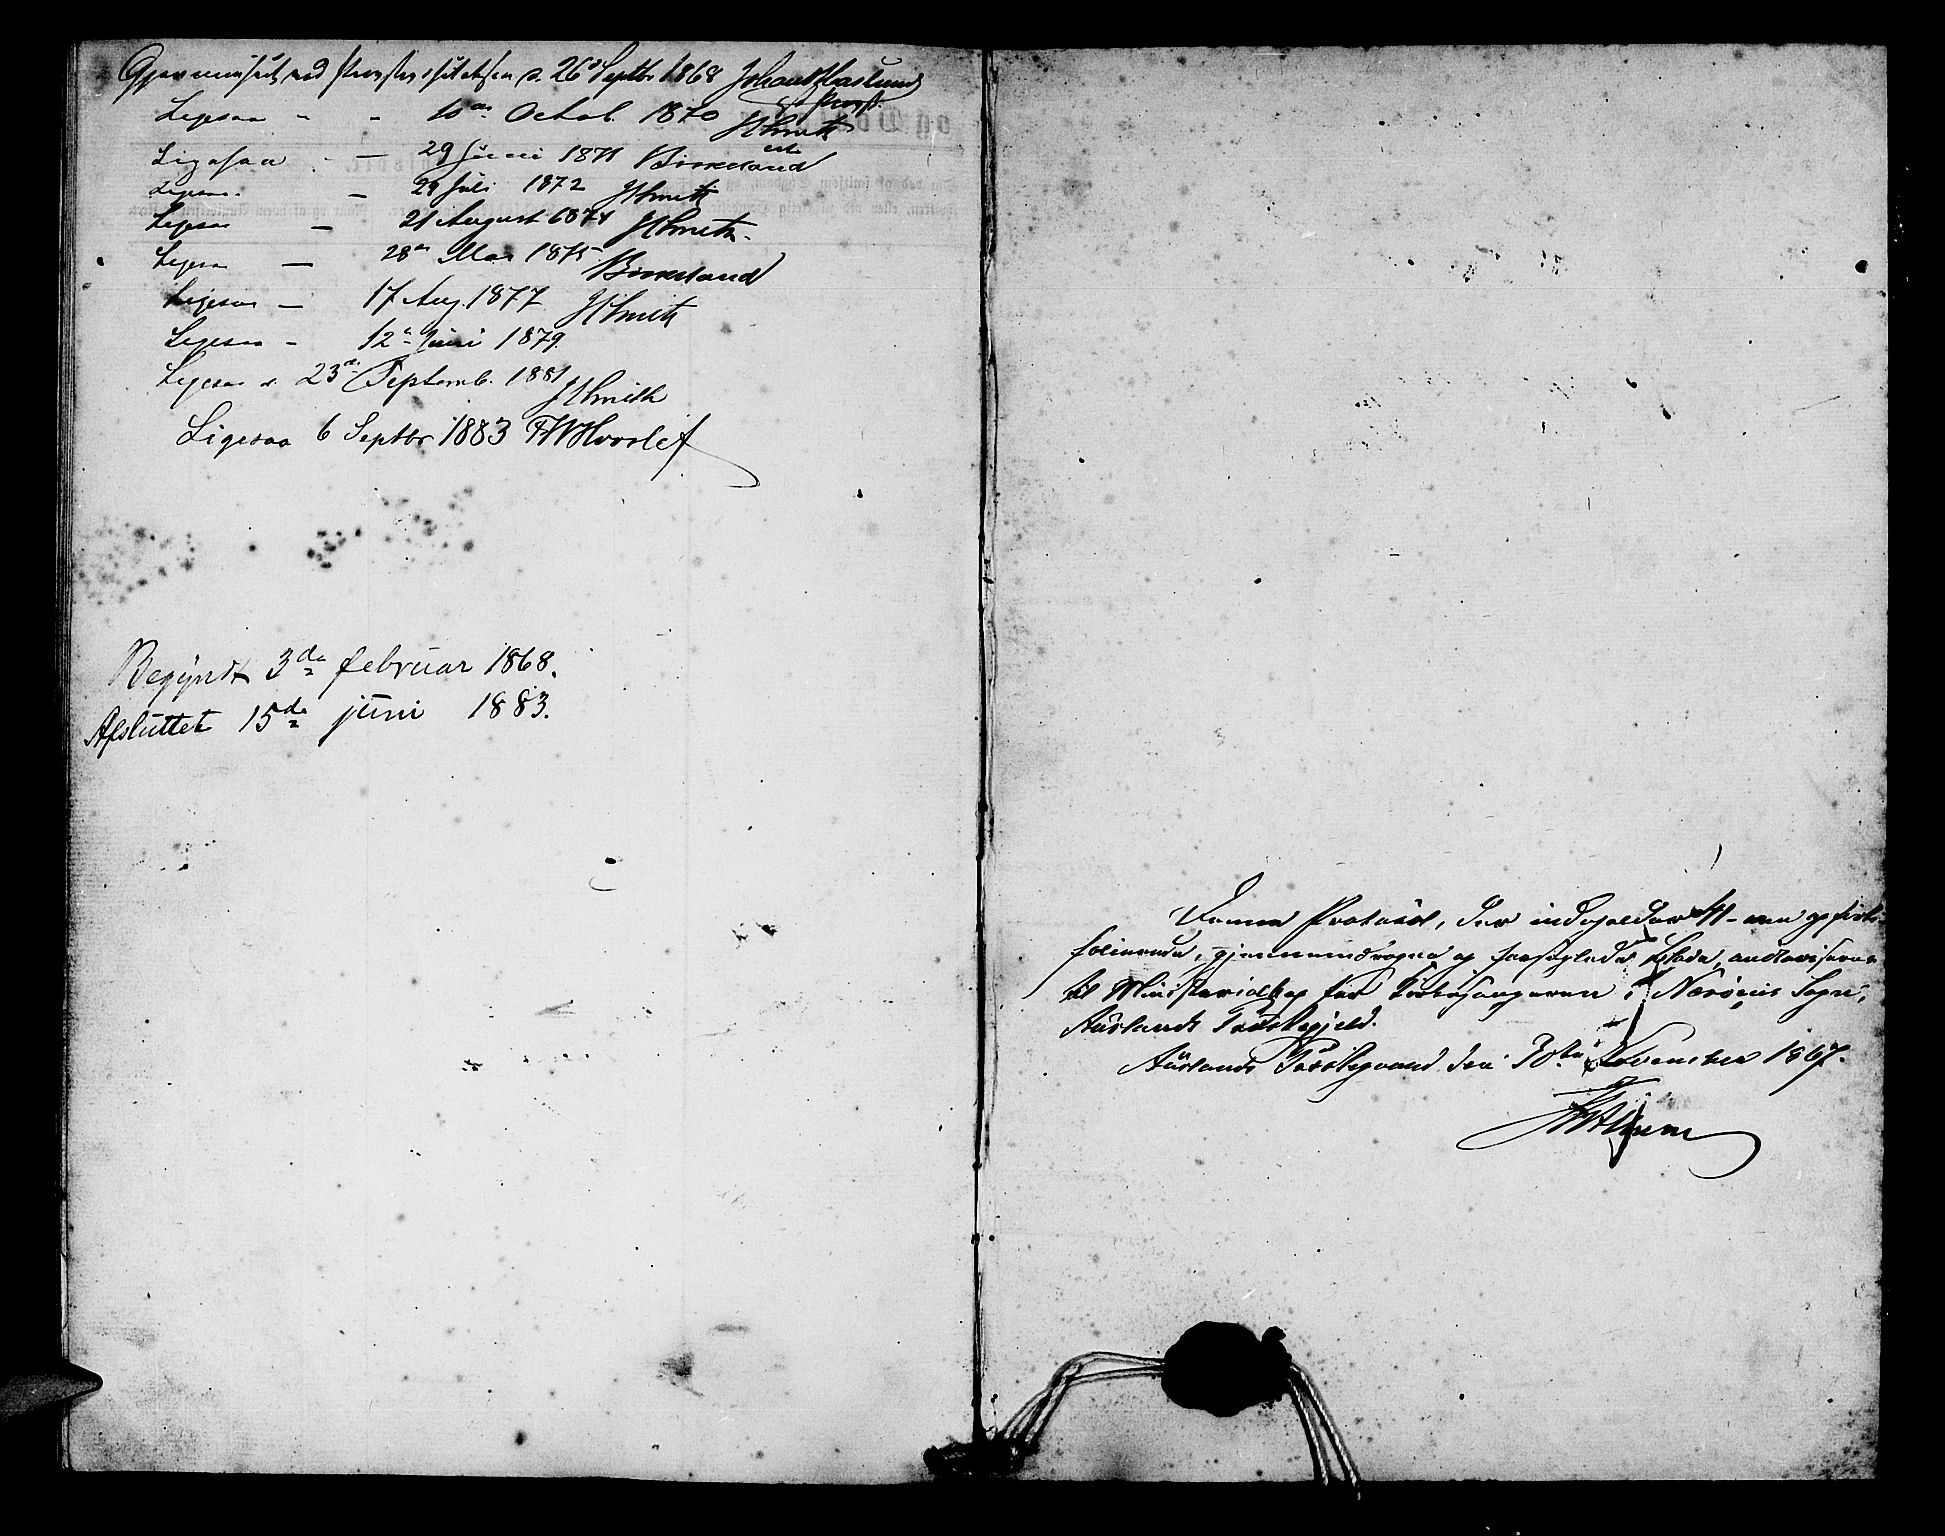 Gjennemseet ved Provstevisitatsen d. 26de Septbr 1868 Johan Haslund
Provst.
Ligesaa " - 10de Octob. 1870 JSmith
Ligesaa - 29 Juni 1871 Birkeland
Ligesaa - 29 Juli 1872 JSmith
Ligesaa - 21 August 1874 JSmith.
Ligesaa - 28de Mai 1875 Birkeland
Ligesaa - 17 Aug. 1877 JSmith
Ligesaa - 12te Juni 1879.
Ligesaa d. 23de Septemb. 1881 JSmith
Ligesaa 6 Septbr 1883 FWHvoslef
Begyndt 3de februar 1868.
Afsluttet 15de juni 1883.
Denne Protocol, der indeholder en og
folierede, gjennemdragne og forseglede Blade, authoriseres
til Ministerialbog for Kirkesangeren i Nærøens Sogn,
Aurlands Præstegjeld.
Aurlands Præstegaard den 30te November 1867.